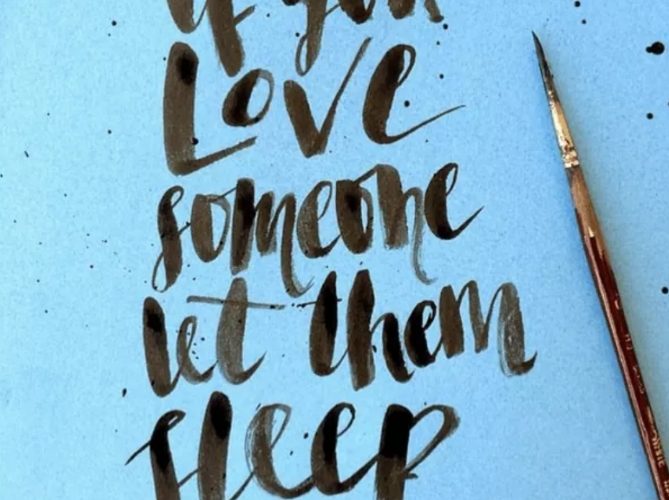 if you
Love
someone
let them
sleep